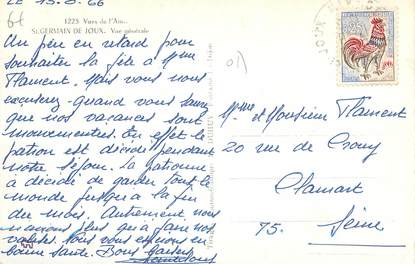 LE 15.8.66
1225 Vues de l'Ain
St GERMAIN DE JOUX. Vue générale
Un peu en retard pour
souhaiter la fête à Mme
Flament. Mais vous nous
excuserez quand vous saurez
que nos vacances sont
mouvementées. En effet le
patron est décédé pendant
notre séjour. La patronne
a décidé de garder tout le
monde jusqu'à la fin
du mois. Autrement nous
n'avons plus qu'à faire nos
valises. Tous vous espérons en
bonne santé. Bons baisers
Mme et Monsieur Flament
20 rue de Crouy
Clamart
75. Seine
JOUX